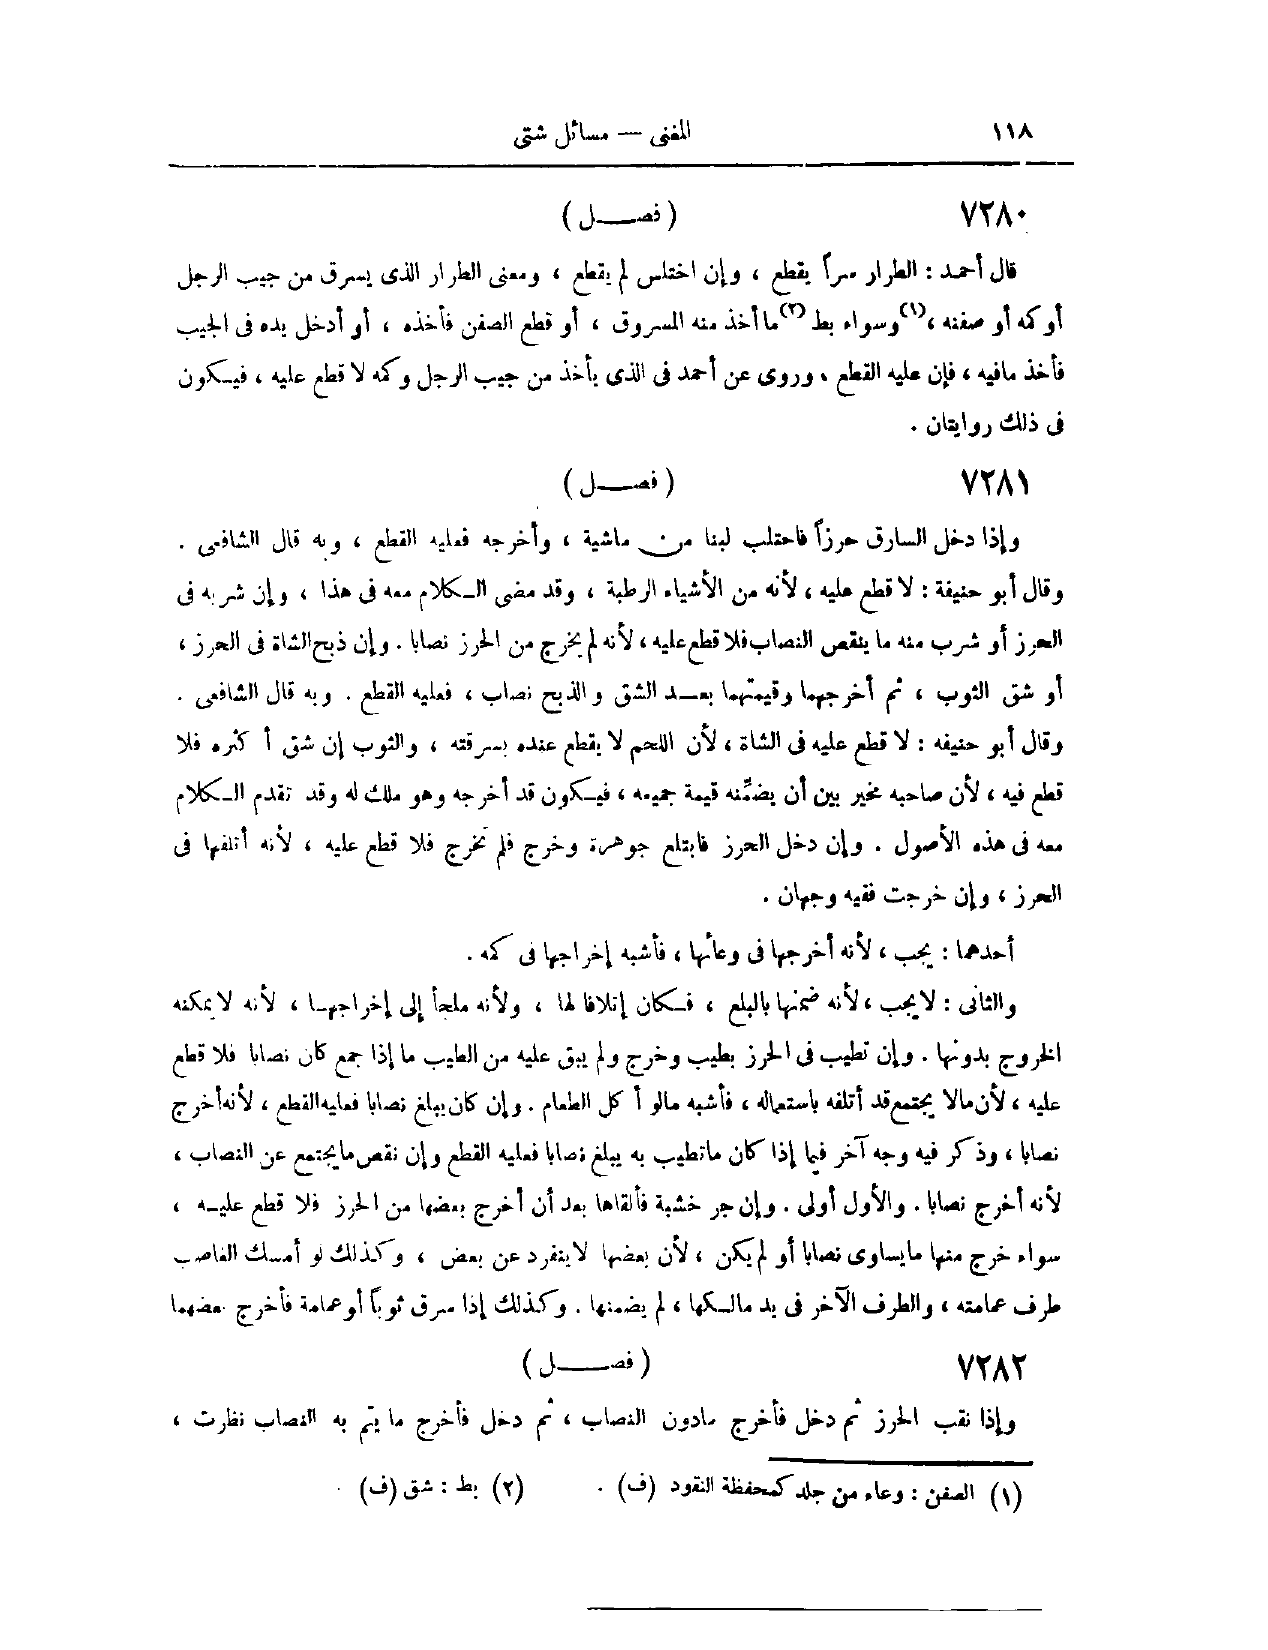 ١١٨ المغنى — مسائل شتى
٧٢٨٠ ( فصــل )
قال أحمد : الطرار سراً يقطع ، وإن اختلس لم يقطع ، ومعنى الطرار الذى يسرق من جيب الرجل
أو كمه أو صفنه ،(١)وسواء بط (٢)ما أخذ منه المسروق ، أو قطع الصفن فأخذه ، أو أدخل يده فى الجيب
فأخذ مافيه ، فإن عليه القطع ، وروى عن أحمد فى الذى يأخذ من جيب الرجل وكمه لا قطع عليه ، فيكون
فى ذلك روايتان .
٧٢٨١ ( فصــل )
وإذا دخل السارق حرزاً فاحتلب لبنا من ماشية ، وأخرجه فعليه القطع ، وبه قال الشافعى .
وقال أبو حنيفة : لا قطع عليه ، لأنه من الأشياء الرطبة ، وقد مضى الكلام معه فى هذا ، وإن شربه فى
الحرز أو شرب منه ما ينقص النصاب فلا قطع عليه ، لأنه لم يخرج من الحرز نصابا . وإن ذبح الشاة فى الحرز ،
أو شق الثوب ، ثم أخرجهما وقيمتهما بعد الشق والذبح نصاب ، فعليه القطع . وبه قال الشافعى .
وقال أبو حنيفه : لا قطع عليه فى الشاة ، لأن اللحم لا يقطع عنده بسرقته ، والثوب إن شق أ كثره فلا
قطع فيه ، لأن صاحبه مخير بين أن يضمِّنه قيمة جميعه ، فيكون قد أخرجه وهو ملك له وقد تقدم الكلام
معه فى هذه الأصول . وإن دخل الحرز فابتلع جوهرة وخرج فلم تخرج فلا قطع عليه ، لأنه أتلفها فى
الحرز ، وإن خرجت ففيه وجهان .
أحدهما : يجب ، لأنه أخرجها فى وعائها ، فأشبه إخراجها فى كمه .
والثانى : لايجب ، لأنه ضمنها بالبلع ، فكان إتلافا لها ، ولأنه ملجأ إلى إخراجها ، لأنه لا يمكنه
الخروج بدونها . وإن تطيب فى الحرز بطيب وخرج ولم يبق عليه من الطيب ما إذا جمع كان نصابا فلا قطع
عليه ، لأن مالا يجتمع قد أتلفه باستعماله ، فأشبه مالو أ كل الطعام . وإن كان يبلغ نصابا فعليه القطع ، لأنه أخرج
نصابا ، وذكر فيه وجه آخر فيما إذا كان ماتطيب به يبلغ نصابا فعليه القطع وإن نقص مايجتمع عن النصاب ،
لأنه أخرج نصابا . والأول أولى . وإن جر خشبة فألقاها بعد أن أخرج بعضها من الحرز فلا قطع عليه ،
سواء خرج منها مايساوى نصابا أو لم يكن ، لأن بعضها لاينفرد عن بعض ، وكذلك لو أمسك الغاصب
طرف عمامته ، والطرف الآخر فى يد مالكها ، لم يضمنها . وكذلك إذا سرق ثوباً أو عمامة فأخرج بعضهما
٧٢٨٢ ( فصــل )
وإذا نقب الحرز ثم دخل فأخرج مادون النصاب ، ثم دخل فأخرج ما يتم به النصاب نظرت ،
(١) الصفن : وعاء من جلد كمحفظة النقود (ف) . (٢) بط : شق (ف) .